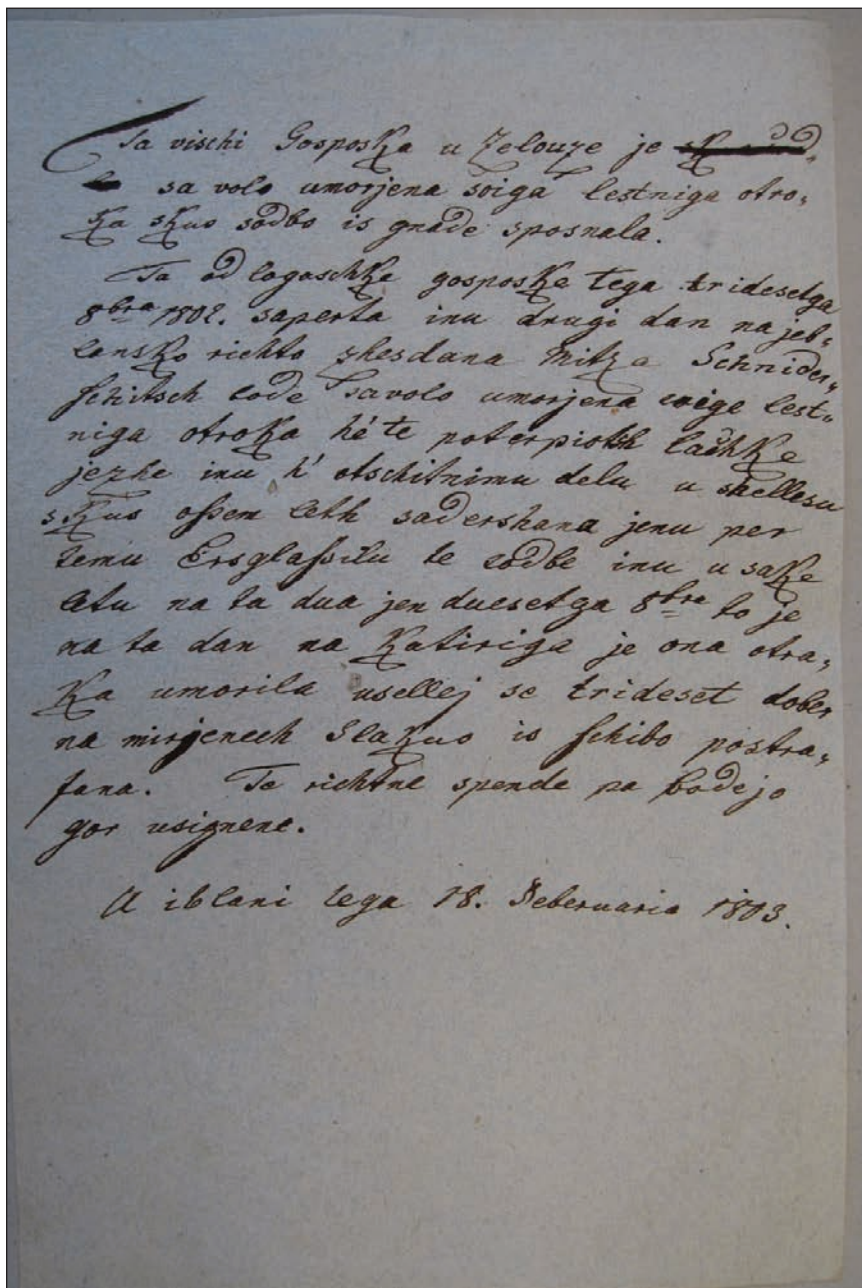 Ta vischi Gosposka u Zelouze je
sa volo umorjena soiga lestniga otro„
ka skus sodbo is gnade sposnala.
Ta od logaschke gosposke tega tridesetga
8bra 1802. saperta inu drugi dan na jeb„
lansko richto shesdana Mitza Schnider„
schitsch bode savolo umorjena soiga lest„
niga otroka h' te poterpioth lashke
jezhe inu h' otschitnimu delu u shellesu
skus ossem leth sadershana jenu per
temu Ersglassilu te sodbe inu u sake
letu na ta dua jen duesetga 8bra to je
na ta dan na katiriga je ona otra„
ka umorila usellej se trideset dober
na mirjenech Slakuo is schibo postra„
fana. Te richtne spende pa bodejo
gor usignene.
U iblani tega 18. Februaria 1803.